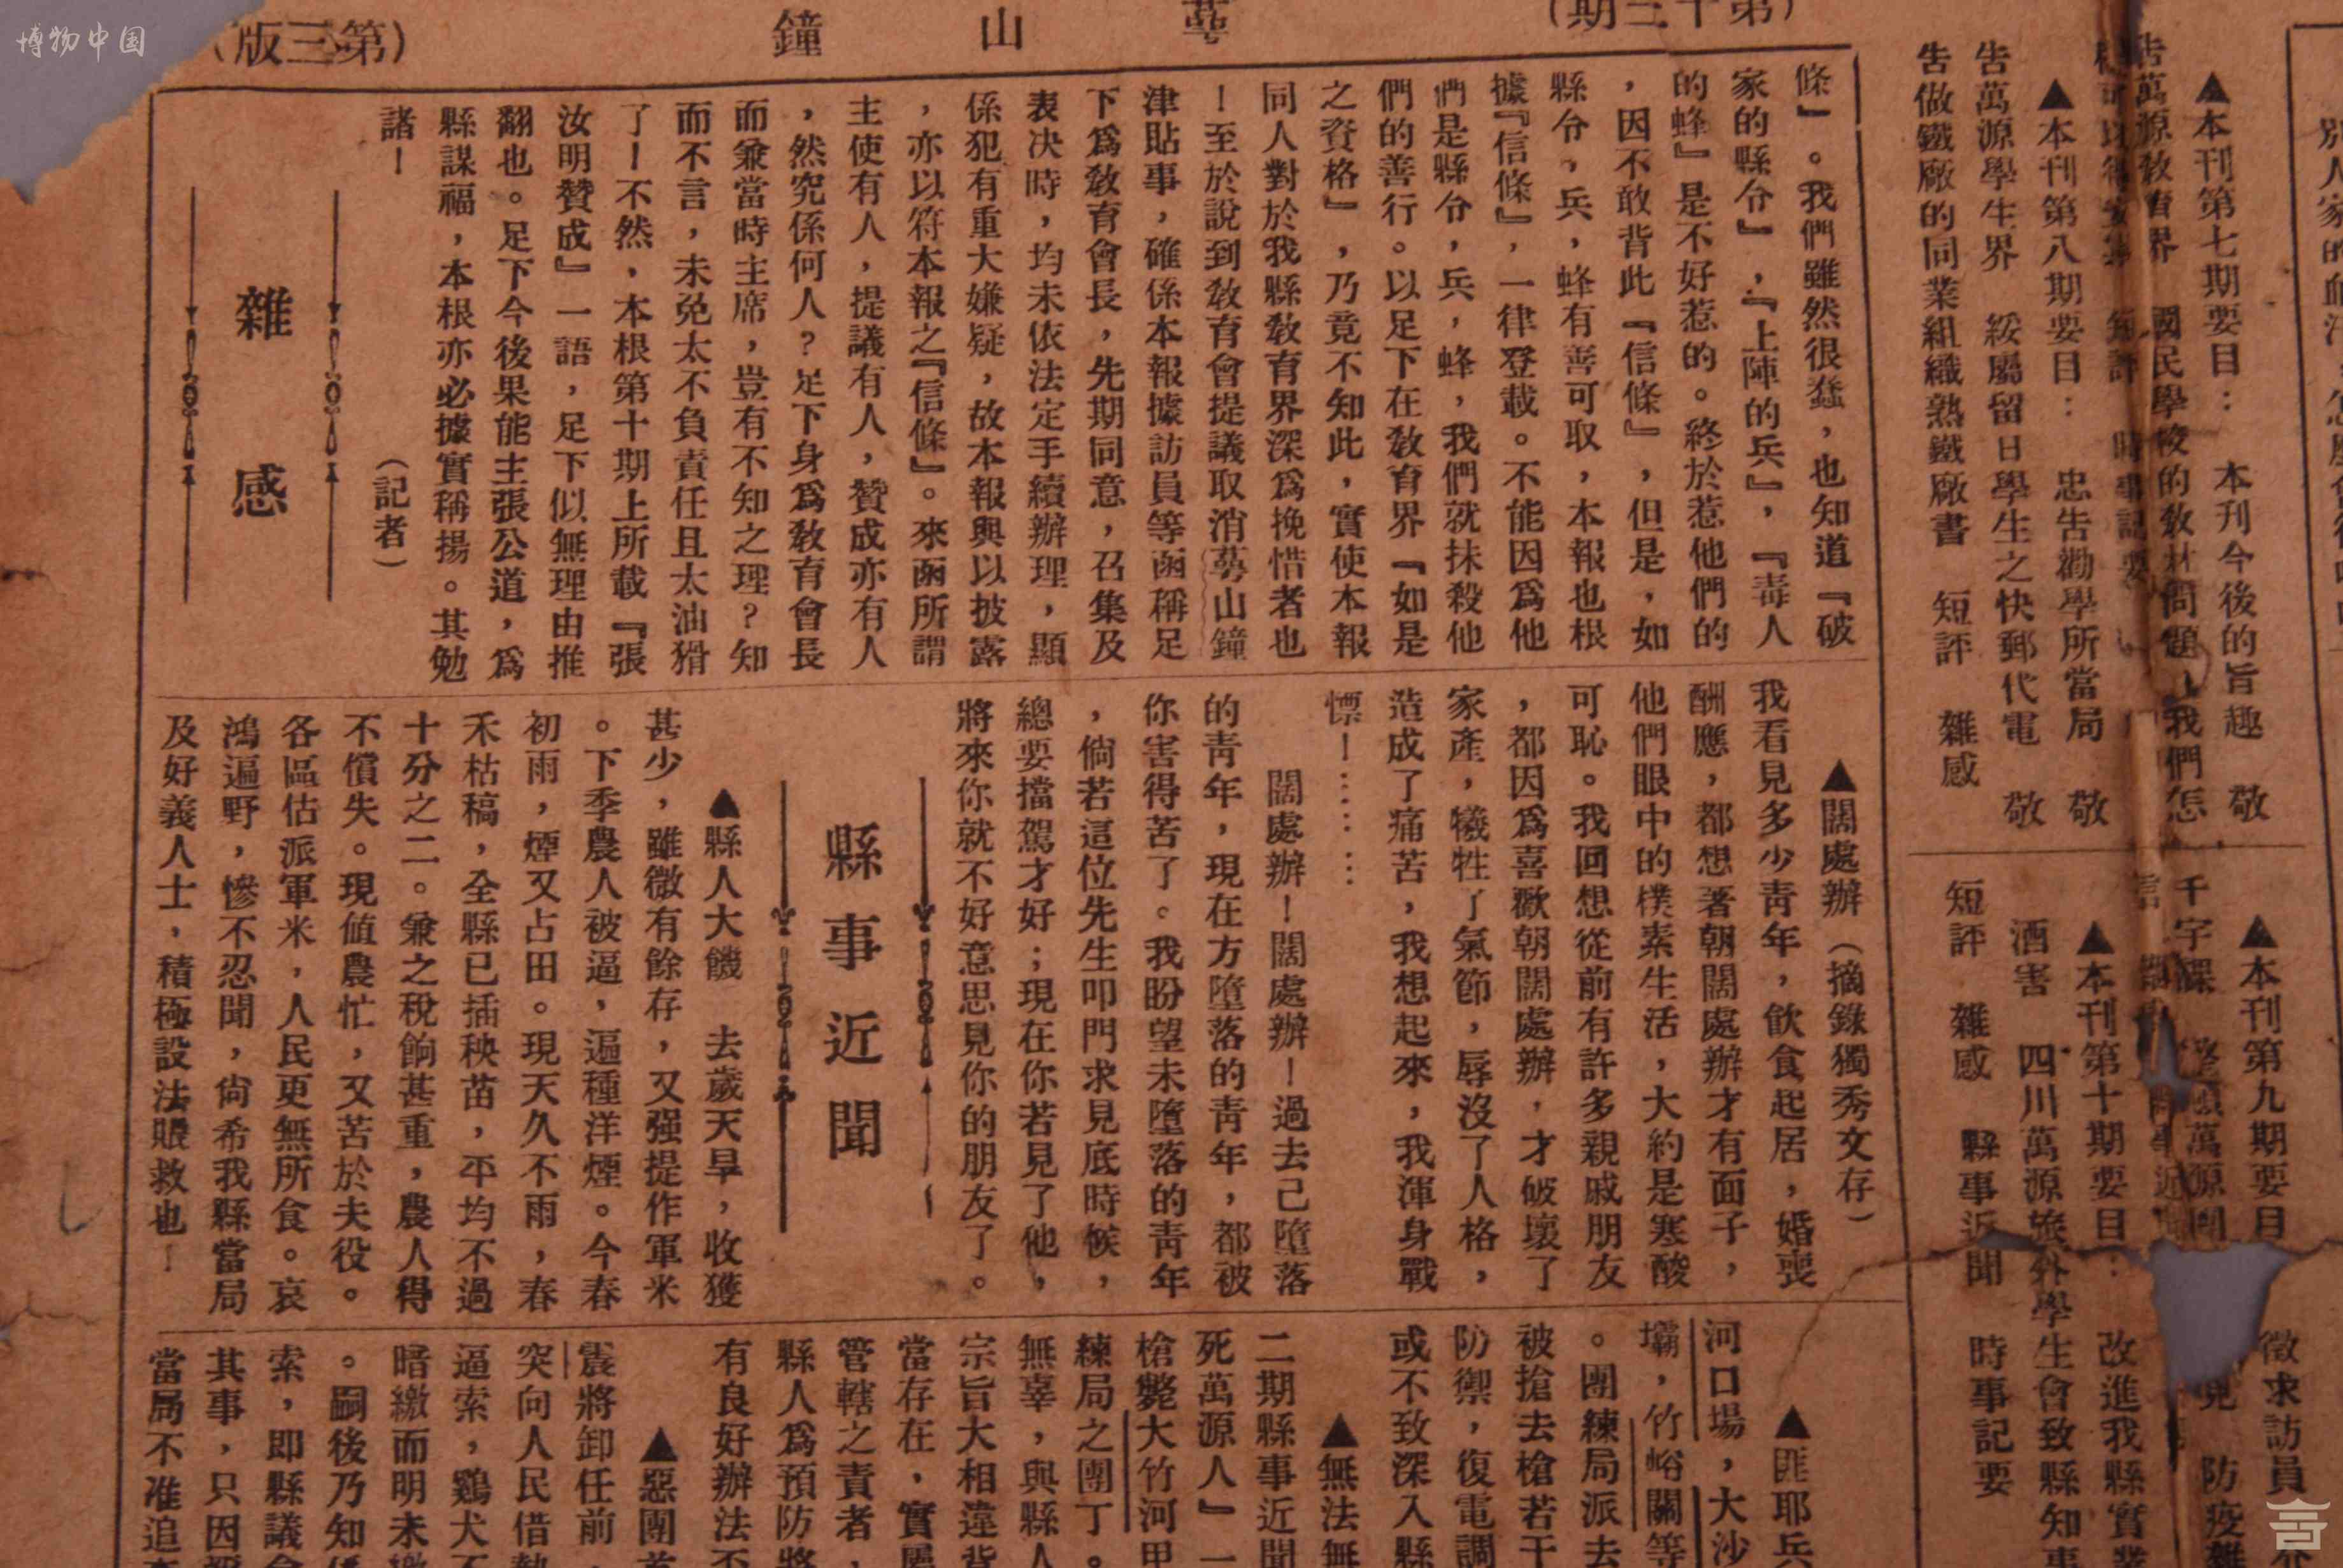 博物中国
（第十三期）
萼山鐘
（第三版）
別人家的血汗
▲本刊第七期要目： 本刊今後的旨趣 敬
告萬源教育界 國民學校的教材問題 我們怎
短評 時事記要
▲本刊第八期要目： 忠告勸學所當局 敬
告萬源學生界 綏屬留日學生之快郵代電 敬
告做鐵廠的同業組織熟鐵廠書 短評 雜感
▲本刊第九期要目
千字課 萬源
▲本刊第十期要目： 改進我縣實業
酒害 四川萬源旅外學生會致縣知事
短評 雜感 縣事近聞 時事記要
徵求訪員
防疫
條』。我們雖然很蠢，也知道『破
家的縣分』，『上陣的兵』，『毒人
的蜂』是不好惹的。終於惹他們的
，因不敢背此『信條』，但是，如
縣分，兵，蜂有善可取，本報也根
據『信條』，一律登載。不能因爲他
們是縣分，兵，蜂，我們就抹殺他
們的善行。以足下在教育界『如是
之資格』，乃竟不知此，實使本報
同人對於我縣教育界深爲挽惜者也
！至於說到教育會提議取消萼山鐘
津貼事，確係本報據訪員等函稱足
下爲教育會長，先期同意，召集及
表决時，均未依法定手續辦理，顯
係犯有重大嫌疑，故本報與以披露
，亦以符本報之『信條』。來函所謂
主使有人，提議有人，贊成亦有人
，然究係何人？足下身爲教育會長
而兼當時主席，豈有不知之理？知
而不言，未免太不負責任且太油猾
了！不然，本根第十期上所載『張
汝明贊成』一語，足下似無理由推
翻也。足下今後果能主張公道，爲
縣謀福，本根亦必據實稱揚。其勉
諸！ （記者）
雜感
▲闊處辦（摘錄獨秀文存）
我看見多少青年，飲食起居，婚喪
酬應，都想著朝闊處辦才有面子，
他們眼中的樸素生活，大約是寒酸
可恥。我回想從前有許多親戚朋友
，都因爲喜歡朝闊處辦，才破壞了
家產，犧牲了氣節，辱沒了人格，
造成了痛苦，我想起來，我渾身戰
慄！……
闊處辦！闊處辦！過去已墮落
的靑年，現在方墮落的靑年，都被
你害得苦了。我盼望未墮落的靑年
，倘若這位先生叩門求見底時候，
總要擋駕才好；現在你若見了他，
將來你就不好意思見你的朋友了。
縣事近聞
▲縣人大饑 去歲天旱，收獲
甚少，雖微有餘存，又强提作軍米
。下季農人被逼，遍種洋煙。今春
初雨，煙又占田。現天久不雨，春
禾枯稿，全縣已插秧苗，平均不過
十分之二。兼之稅餉甚重，農人得
不償失。現値農忙，又苦於夫役。
各區估派軍米，人民更無所食。哀
鴻遍野，慘不忍聞，尙希我縣當局
及好義人士，積極設法賑救也！
▲匪耶兵
河口場，大沙
壩，竹峪關等
。團練局派去
被搶去槍若干
防禦，復電調
或不致深入縣
▲無法無
二期縣事近聞
死萬源人』一
槍斃大竹河甲
練局之團丁。
無辜，與縣人
宗旨大相違背
當存在，實屬
管轄之責者，
縣人爲預防將
有良好辦法不
▲惡團首
震將卸任前，
突向人民借墊
逼索，鷄犬不
暗繳而明未繳
。嗣後乃知係
索，即縣議會
其事，只因
當局不准追